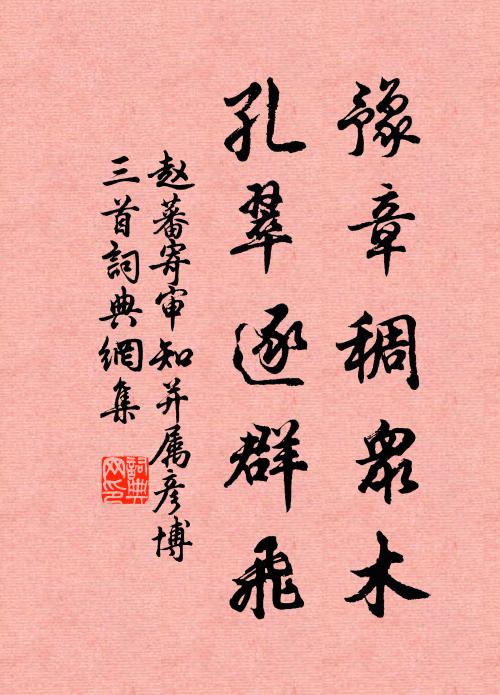 豫章稠眾木
孔翠逐群飛
赵蕃寄审知并属彦博
三首詞典網集
詞典网印